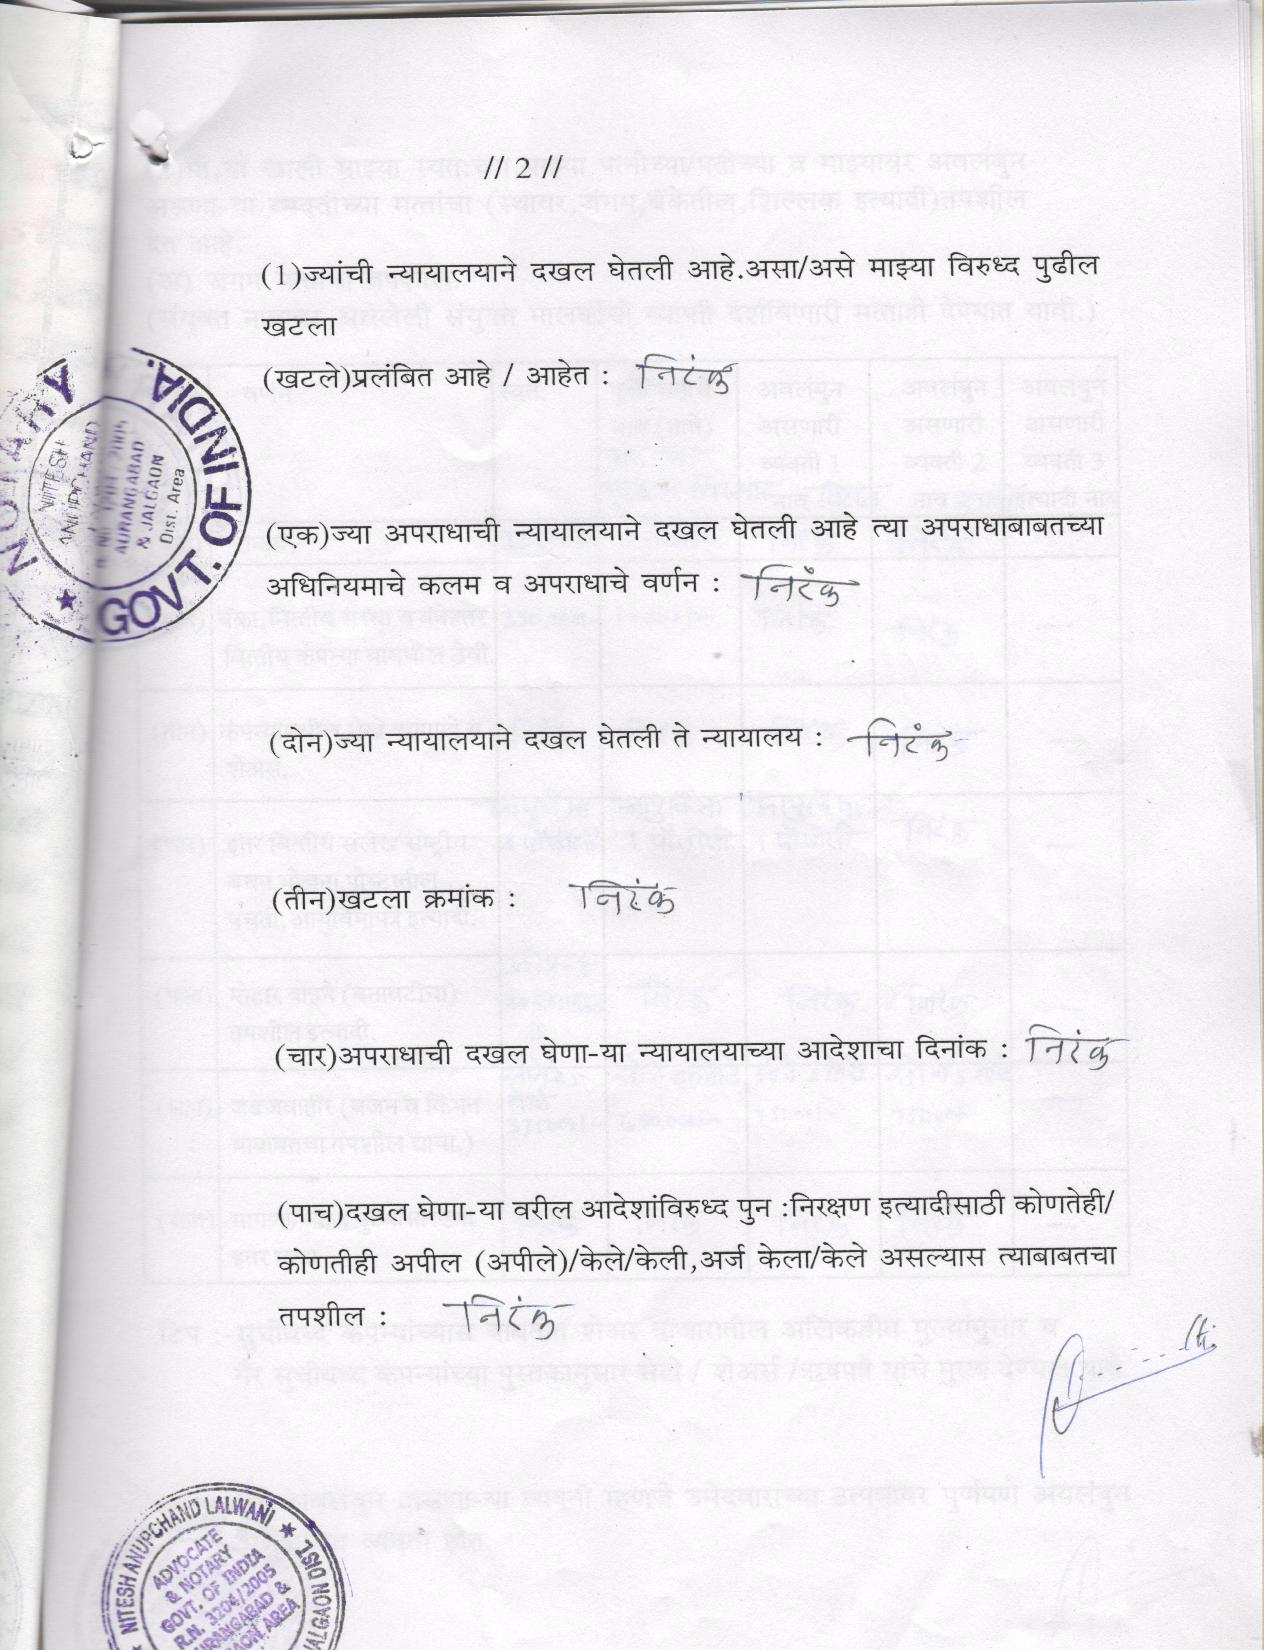 // 2 //
(1)ज्यांची न्यायालयाने दखल घेतली आहे.असा/असे माझ्या विरुध्द पुढील
खटला
(खटले)प्रलंबित आहे / आहेत : निरंक
(एक)ज्या अपराधाची न्यायालयाने दखल घेतली आहे त्या अपराधाबाबतच्या
अधिनियमाचे कलम व अपराधाचे वर्णन : निरंक
(दोन)ज्या न्यायालयाने दखल घेतली ते न्यायालय : निरंक
(तीन)खटला क्रमांक : निरंक
(चार)अपराधाची दखल घेणा-या न्यायालयाच्या आदेशाचा दिनांक : निरंक
(पाच)दखल घेणा-या वरील आदेशांविरुध्द पुन :निरक्षण इत्यादीसाठी कोणतेही/
कोणतीही अपील (अपीले)/केले/केली,अर्ज केला/केले असल्यास त्याबाबतचा
तपशील : निरंक
GOVT. OF INDIA.
NITESH
ANUPCHAND
AURANGABAD
& JALGAON
Dist. Area
NITESH ANUPCHAND LALWANI
JALGAON DIST.
ADVOCATE
& NOTARY
GOVT. OF INDIA
R.N. 3204/2005
AURANGABAD &
JALGAON AREA